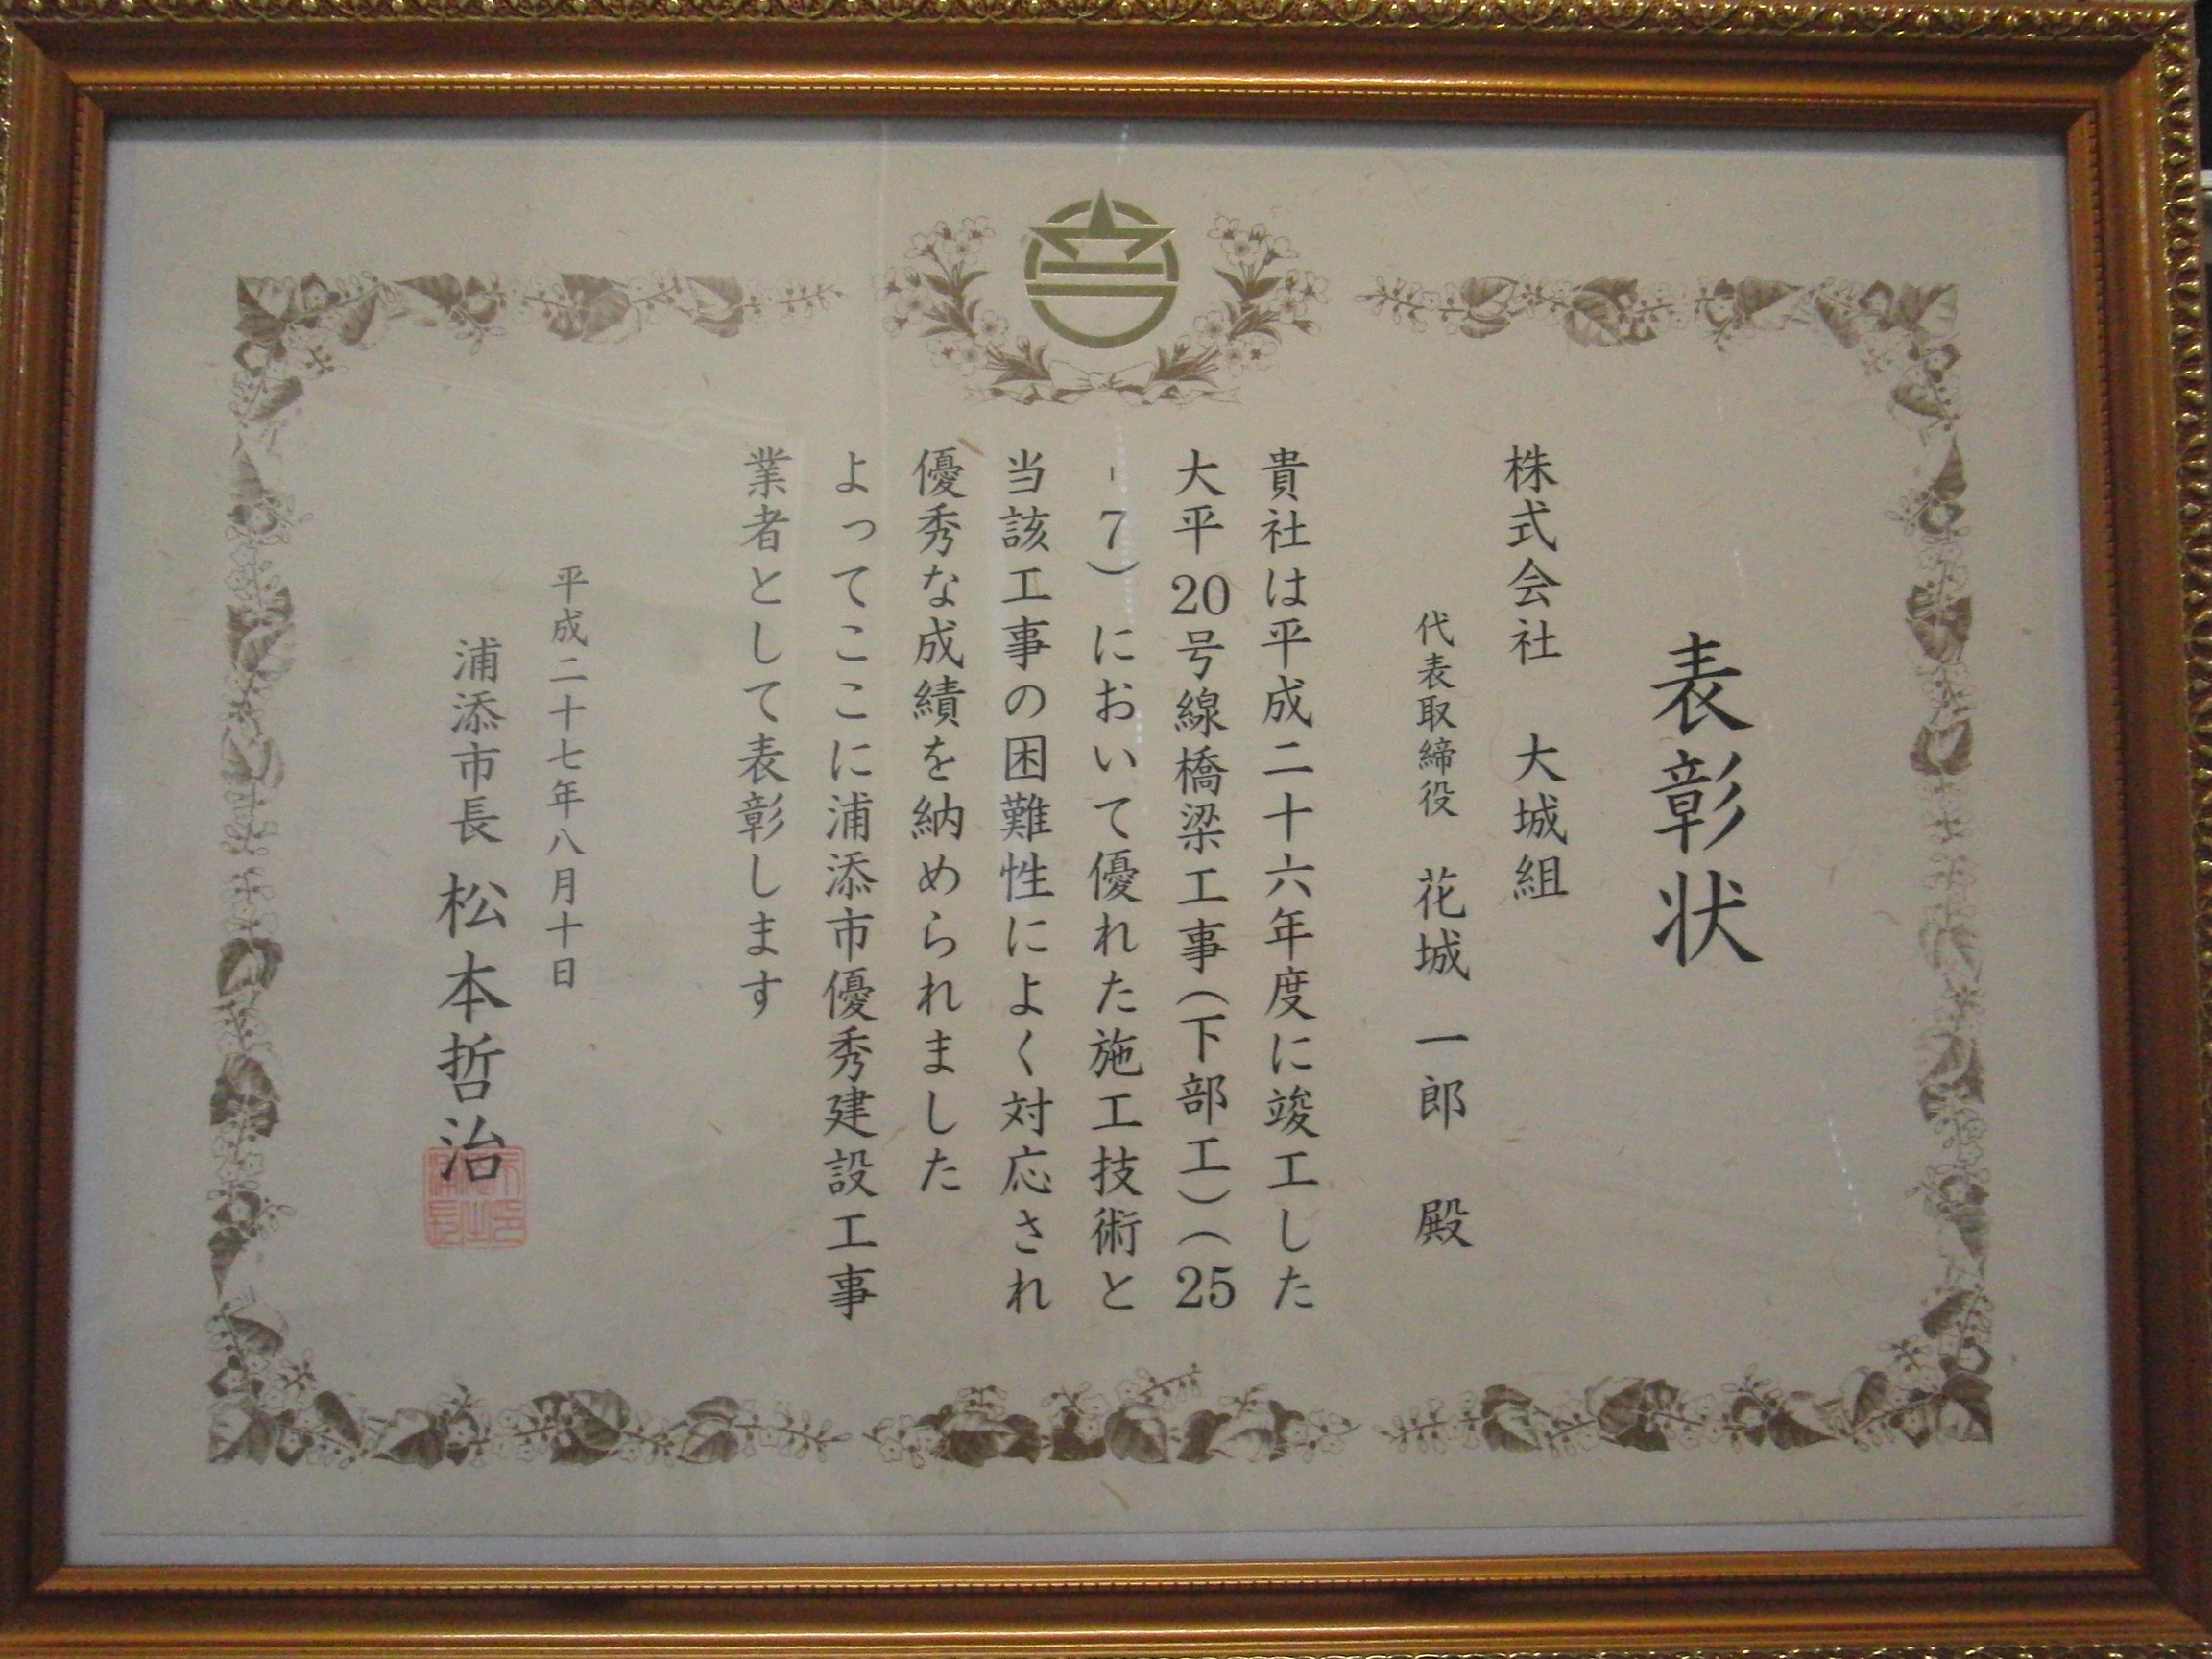 表彰状
株式会社 大城組
代表取締役 花城 一郎 殿
貴社は平成二十六年度に竣工した
大平20号線橋梁工事(下部工)(25
-7)において優れた施工技術と
当該工事の困難性によく対応され
優秀な成績を納められました
よってここに浦添市優秀建設工事
業者として表彰します
平成二十七年八月十日
浦添市長 松本哲治